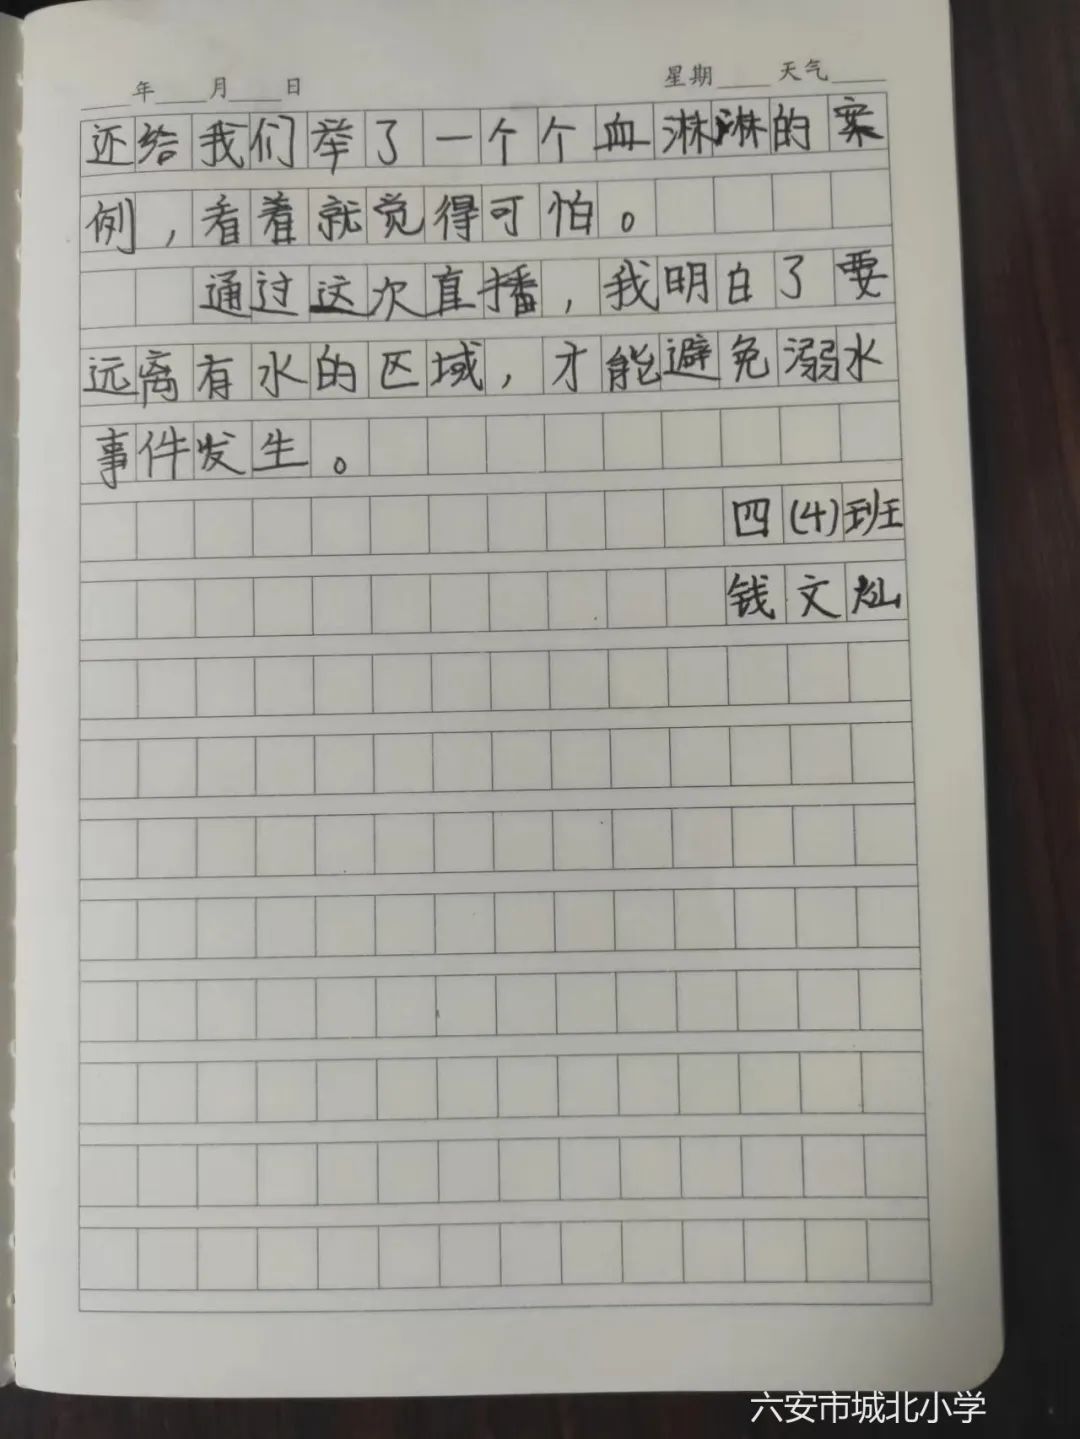 ____年____月____日 星期____天气____
还给我们举了一个个血淋淋的案
例，看着就觉得可怕。
通过这次直播，我明白了要
远离有水的区域，才能避免溺水
事件发生。
四(4)班
钱文灿
六安市城北小学